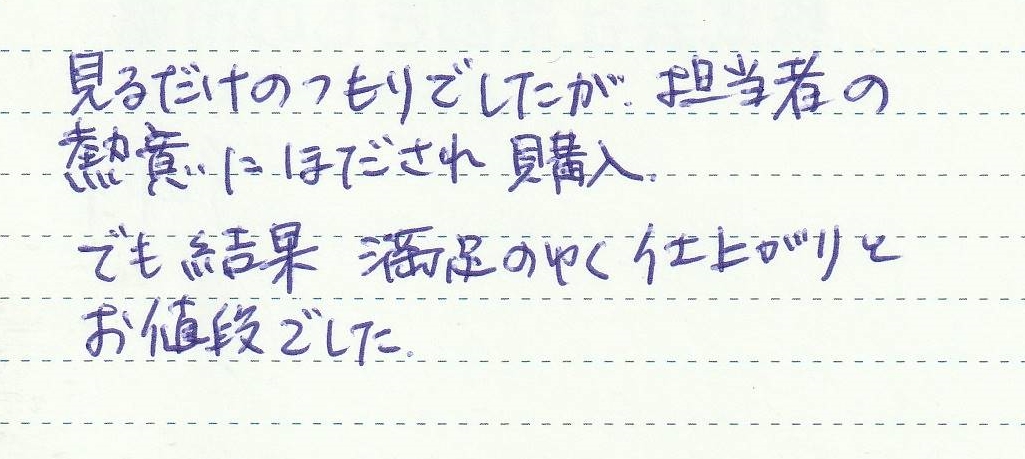 見るだけのつもりでしたが、担当者の
熱意にほだされ購入、
でも結果 満足のゆく仕上がりと
お値段でした。